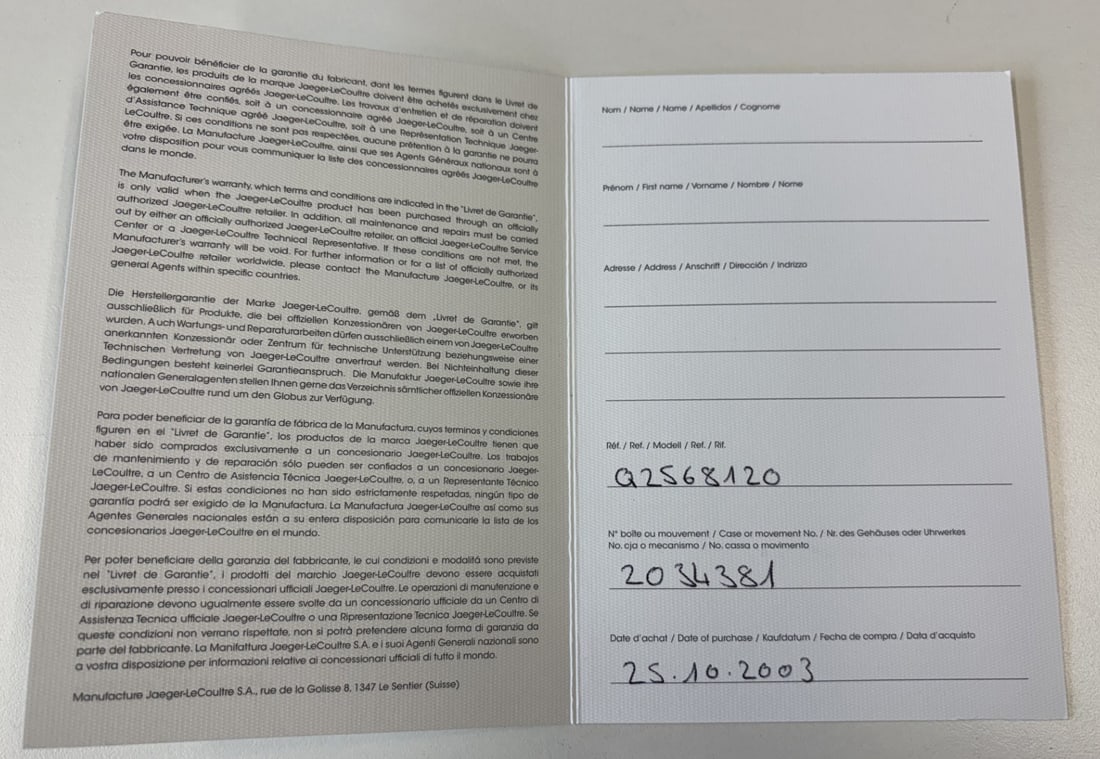 Pour pouvoir bénéficier de la garantie du fabricant, dont les termes figurent dans le Livret de
Garantie, les produits de la marque Jaeger-LeCoultre doivent être achetés exclusivement chez
les concessionnaires agréés Jaeger-LeCoultre. Les travaux d'entretien et de réparation doivent
également être confiés, soit à un concessionnaire agréé Jaeger-LeCoultre, soit à un Centre
d'Assistance Technique agréé Jaeger-LeCoultre, soit à une Représentation Technique Jaeger-
LeCoultre. Si ces conditions ne sont pas respectées, aucune prétention à la garantie ne pourra
être exigée. La Manufacture Jaeger-LeCoultre, ainsi que ses Agents Généraux nationaux sont à
votre disposition pour vous communiquer la liste des concessionnaires agréés Jaeger-LeCoultre
dans le monde.
The Manufacturer's warranty, which terms and conditions are indicated in the "Livret de Garantie",
is only valid when the Jaeger-LeCoultre product has been purchased through an officially
authorized Jaeger-LeCoultre retailer. In addition, all maintenance and repairs must be carried
out by either an officially authorized Jaeger-LeCoultre retailer, an official Jaeger-LeCoultre Service
Center or a Jaeger-LeCoultre Technical Representative. If these conditions are not met, the
Manufacturer's warranty will be void. For further information or for a list of officially authorized
Jaeger-LeCoultre retailer worldwide, please contact the Manufacture Jaeger-LeCoultre, or its
general Agents within specific countries.
Die Herstellergarantie der Marke Jaeger-LeCoultre, gemäß dem „Livret de Garantie", gilt
ausschließlich für Produkte, die bei offiziellen Konzessionären von Jaeger-LeCoultre erworben
wurden. Auch Wartungs- und Reparaturarbeiten dürfen ausschließlich einem von Jaeger-LeCoultre
anerkannten Konzessionär oder Zentrum für technische Unterstützung beziehungsweise einer
Technischen Vertretung von Jaeger-LeCoultre anvertraut werden. Bei Nichteinhaltung dieser
Bedingungen besteht keinerlei Garantieanspruch. Die Manufaktur Jaeger-LeCoultre sowie ihre
nationalen Generalagenten stellen Ihnen gerne das Verzeichnis sämtlicher offiziellen Konzessionäre
von Jaeger-LeCoultre rund um den Globus zur Verfügung.
Para poder beneficiar de la garantía de fábrica de la Manufactura, cuyos terminos y condiciones
figuren en el "Livret de Garantie", los productos de la marca Jaeger-LeCoultre tienen que
haber sido comprados exclusivamente a un concesionario Jaeger-LeCoultre. Los trabajos
de mantenimiento y de reparación sólo pueden ser confiados a un concesionario Jaeger-
LeCoultre, a un Centro de Asistencia Técnica Jaeger-LeCoultre, o, a un Representante Técnico
Jaeger-LeCoultre. Si estas condiciones no han sido estrictamente respetadas, ningún tipo de
garantía podrá ser exigido de la Manufactura. La Manufactura Jaeger-LeCoultre así como sus
Agentes Generales nacionales están a su entera disposición para comunicarle la lista de los
concesionarios Jaeger-LeCoultre en el mundo.
Per poter beneficiare della garanzia del fabbricante, le cui condizioni e modalità sono previste
nel "Livret de Garantie", i prodotti del marchio Jaeger-LeCoultre devono essere acquistati
esclusivamente presso i concessionari ufficiali Jaeger-LeCoultre. Le operazioni di manutenzione e
di riparazione devono ugualmente essere svolte da un concessionario ufficiale da un Centro di
Assistenza Tecnica ufficiale Jaeger-LeCoultre o una Ripresentazione Tecnica Jaeger-LeCoultre. Se
queste condizioni non verrano rispettate, non si potrà pretendere alcuna forma di garanzia da
parte del fabbricante. La Manifattura Jaeger-LeCoultre S.A. e i suoi Agenti Generali nazionali sono
a vostra disposizione per informazioni relative ai concessionari ufficiali di tutto il mondo.
Manufacture Jaeger-LeCoultre S.A., rue de la Golisse 8, 1347 Le Sentier (Suisse)
Nom / Name / Name / Apellidos / Cognome
Prénom / First name / Vorname / Nombre / Nome
Adresse / Address / Anschrift / Dirección / Indrizzo
Réf. / Ref. / Modell / Ref. / Rif.
Q2568120
N° boîte ou mouvement / Case or movement No. / Nr. des Gehäuses oder Uhrwerkes
No. cja o mecanismo / No. cassa o movimento
2034381
Date d'achat / Date of purchase / Kaufdatum / Fecha de compra / Data d'acquisto
25.10.2003